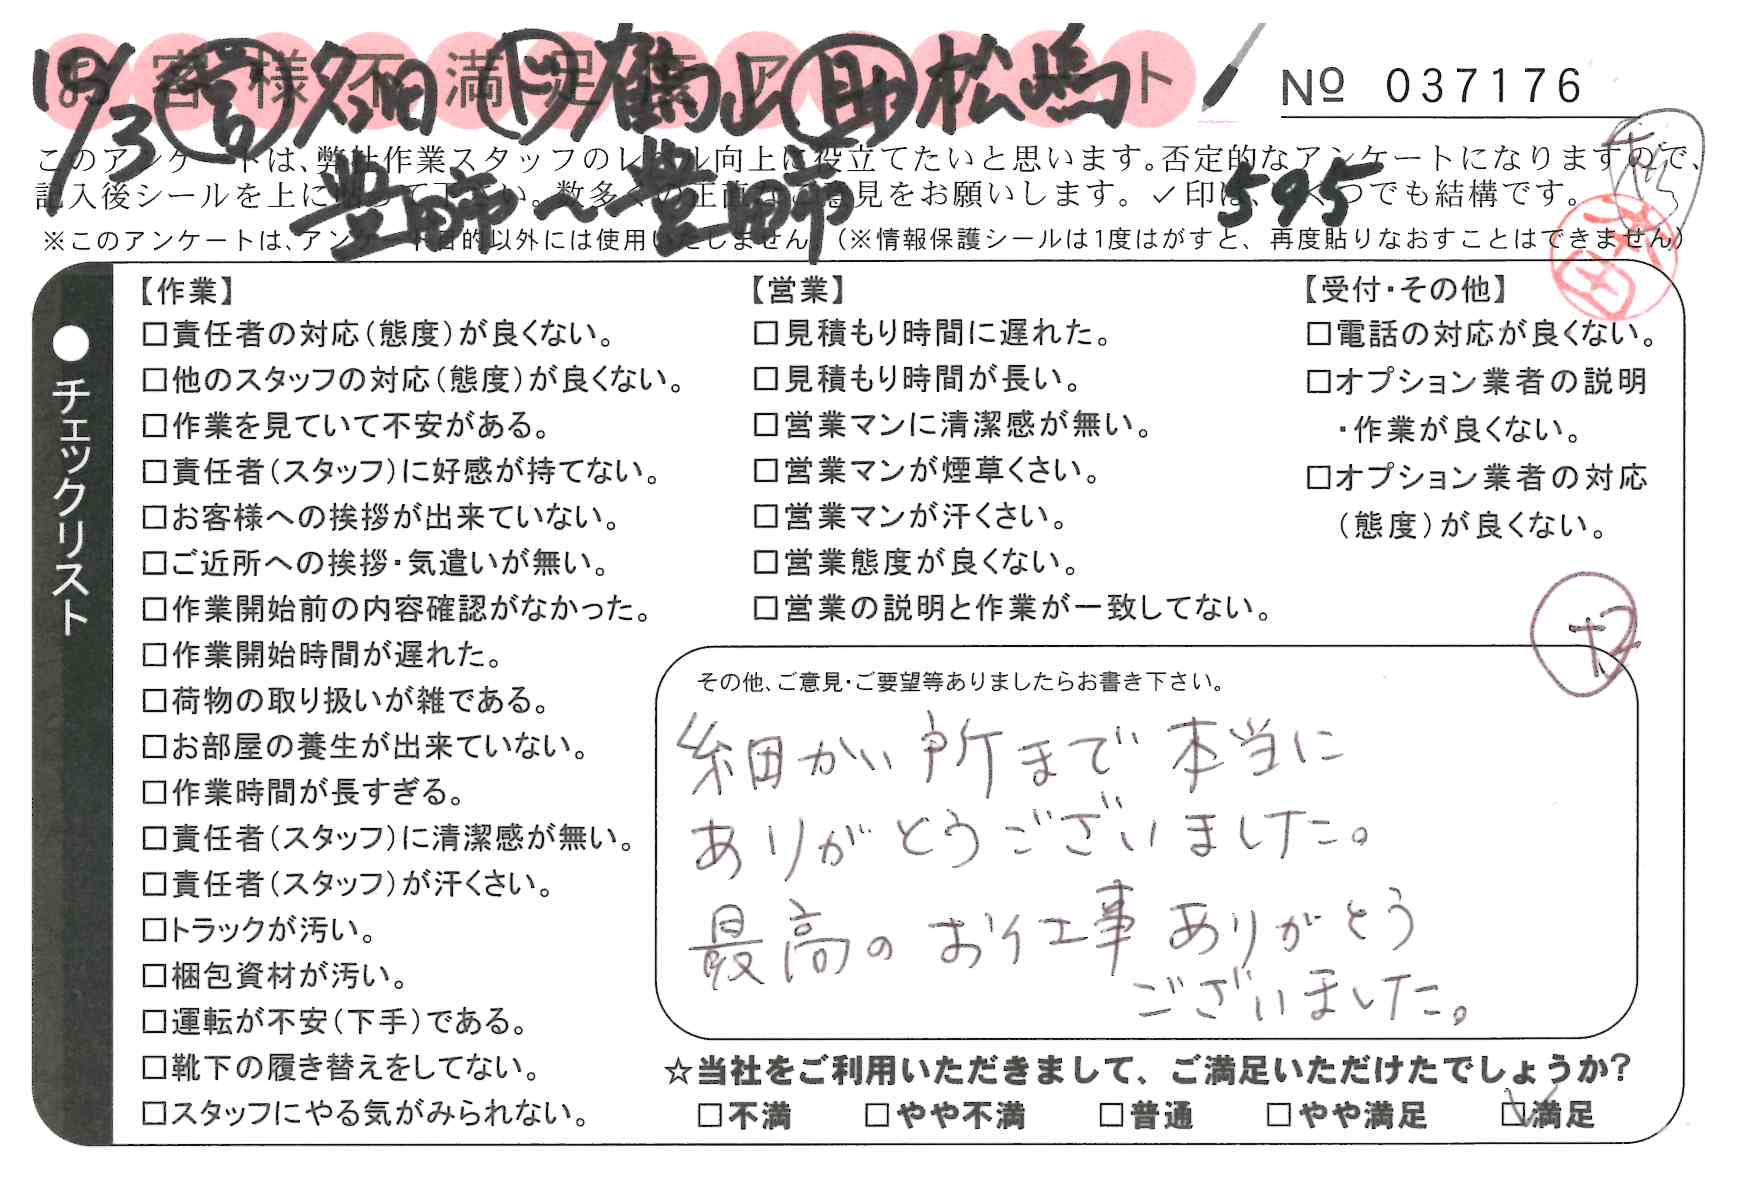 お客様不満足度アンケート
№ 037176
10/3 営 多畑 ド 鶴山 助 松嶋
豊田市～豊田市 595
このアンケートは、弊社作業スタッフのレベル向上に役立てたいと思います。否定的なアンケートになりますので、
記入後シールを上に貼って下さい。数多くの正直なご意見をお願いします。✓印は、いくつでも結構です。
※このアンケートは、アンケート目的以外には使用いたしません。（※情報保護シールは1度はがすと、再度貼りなおすことはできません）
●チェックリスト
【作業】
□責任者の対応（態度）が良くない。
□他のスタッフの対応（態度）が良くない。
□作業を見ていて不安がある。
□責任者（スタッフ）に好感が持てない。
□お客様への挨拶が出来ていない。
□ご近所への挨拶・気遣いが無い。
□作業開始前の内容確認がなかった。
□作業開始時間が遅れた。
□荷物の取り扱いが雑である。
□お部屋の養生が出来ていない。
□作業時間が長すぎる。
□責任者（スタッフ）に清潔感が無い。
□責任者（スタッフ）が汗くさい。
□トラックが汚い。
□梱包資材が汚い。
□運転が不安（下手）である。
□靴下の履き替えをしてない。
□スタッフにやる気がみられない。
【営業】
□見積もり時間に遅れた。
□見積もり時間が長い。
□営業マンに清潔感が無い。
□営業マンが煙草くさい。
□営業マンが汗くさい。
□営業態度が良くない。
□営業の説明と作業が一致してない。
【受付・その他】
□電話の対応が良くない。
□オプション業者の説明
・作業が良くない。
□オプション業者の対応
（態度）が良くない。
その他、ご意見・ご要望等ありましたらお書き下さい。
細かい所まで本当に
ありがとうございました。
最高のお仕事ありがとう
ございました。
☆当社をご利用いただきまして、ご満足いただけたでしょうか？
□不満 □やや不満 □普通 □やや満足 ☑満足